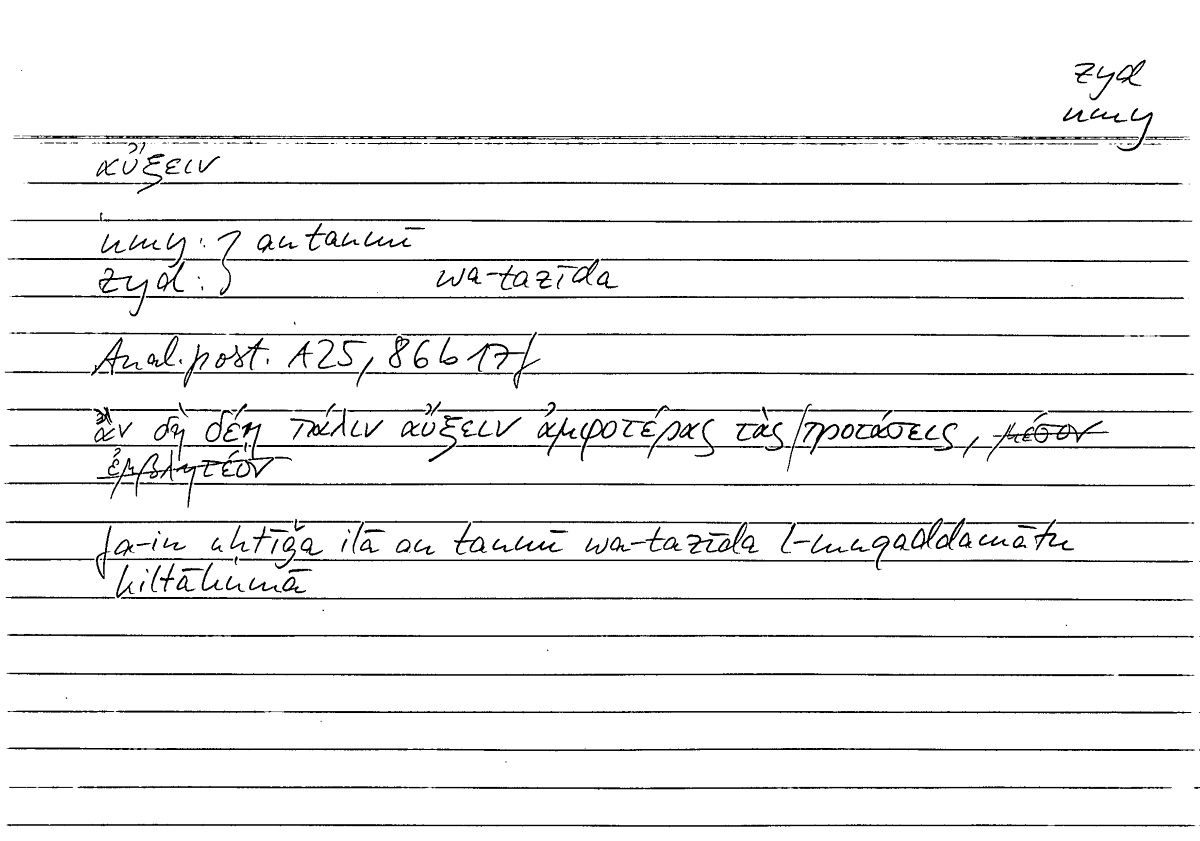 zyd
nmy
αὔξειν
nmy: } an tanmī
zyd: } wa-tazīda
Anal. post. A25, 86b17f
ἂν δὴ δέῃ πάλιν αὔξειν ἀμφοτέρας τὰς/προτάσεις, μέσον
ἐμβλητέον
fa-in uḥtīǧa ilā an tanmī wa-tazīda l-muqaddamātu
kiltāhumā